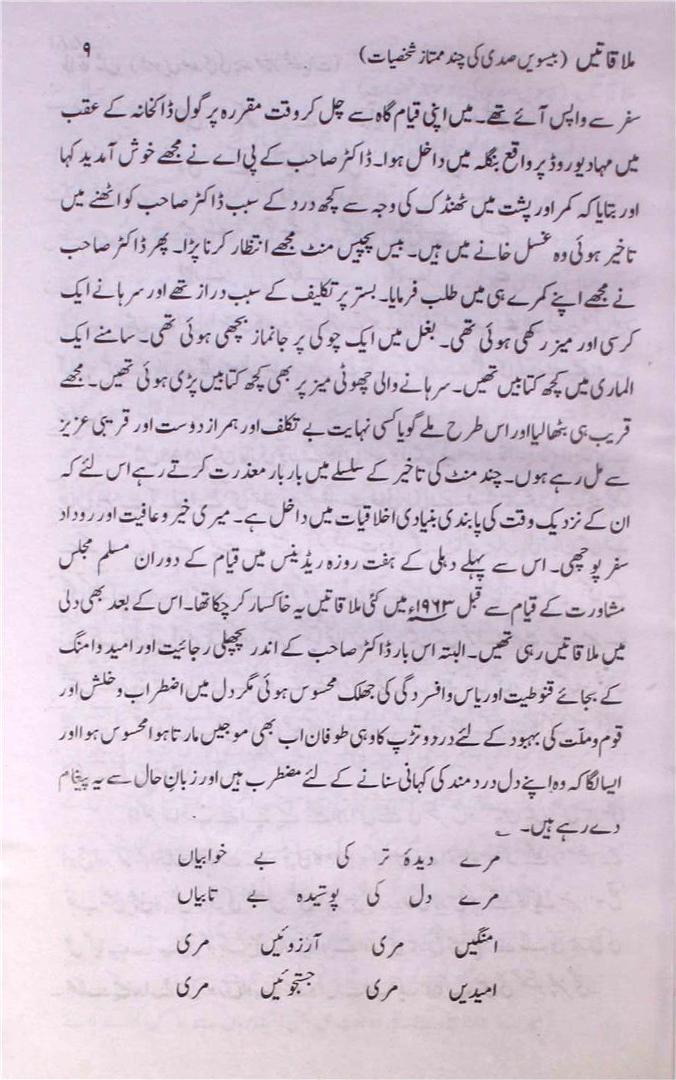 ملاقاتیں (بیسویں صدی کی چند ممتاز شخصیات) ۹
سفر سے واپس آئے تھے۔ میں اپنی قیام گاہ سے چل کر وقت مقررہ پر گول ڈاکخانہ کے عقب
میں مہادیو روڈ پر واقع بنگلہ میں داخل ہوا۔ ڈاکٹر صاحب کے پی اے نے مجھے خوش آمدید کہا
اور بتایا کہ کمر اور پشت میں ٹھنڈک کی وجہ سے کچھ درد کے سبب ڈاکٹر صاحب کو اٹھنے میں
تاخیر ہوئی وہ غسل خانے میں ہیں۔ بیس پچیس منٹ مجھے انتظار کرنا پڑا۔ پھر ڈاکٹر صاحب
نے مجھے اپنے کمرے ہی میں طلب فرمایا۔ بستر پر تکلیف کے سبب دراز تھے اور سرہانے ایک
کرسی اور میز رکھی ہوئی تھی۔ بغل میں ایک چوکی پر جانماز بچھی ہوئی تھی۔ سامنے ایک
الماری میں کچھ کتابیں تھیں۔ سرہانے والی چھوٹی میز پر بھی کچھ کتابیں پڑی ہوئی تھیں۔ مجھے
قریب ہی بٹھالیا اور اس طرح ملے گویا کسی نہایت بے تکلف اور ہمراز دوست اور قریبی عزیز
سے مل رہے ہوں۔ چند منٹ کی تاخیر کے سلسلے میں بار بار معذرت کرتے رہے اس لئے کہ
ان کے نزدیک وقت کی پابندی بنیادی اخلاقیات میں داخل ہے۔ میری خیر و عافیت اور روداد
سفر پوچھی۔ اس سے پہلے دہلی کے ہفت روزہ ریڈینس میں قیام کے دوران مسلم مجلس
مشاورت کے قیام سے قبل ۱۹۶۳ء میں کئی ملاقاتیں یہ خاکسار کر چکا تھا۔ اس کے بعد بھی دلی
میں ملاقاتیں رہی تھیں۔ البتہ اس بار ڈاکٹر صاحب کے اندر پچھلی رجائیت اور امید و امنگ
کے بجائے قنوطیت اور یاس و افسردگی کی جھلک محسوس ہوئی مگر دل میں اضطراب و خلش اور
قوم و ملّت کی بہبود کے لئے درد و تڑپ کا وہی طوفان اب بھی موجیں مارتا ہوا محسوس ہوا اور
ایسا لگا کہ وہ اپنے دل دردمند کی کہانی سنانے کے لئے مضطرب ہیں اور زبانِ حال سے یہ پیغام
دے رہے ہیں۔ ؎
مرے دیدۂ تر کی بے خوابیاں
مرے دل کی پوشیدہ بے تابیاں
امنگیں مری آرزوئیں مری
امیدیں مری جستجوئیں مری